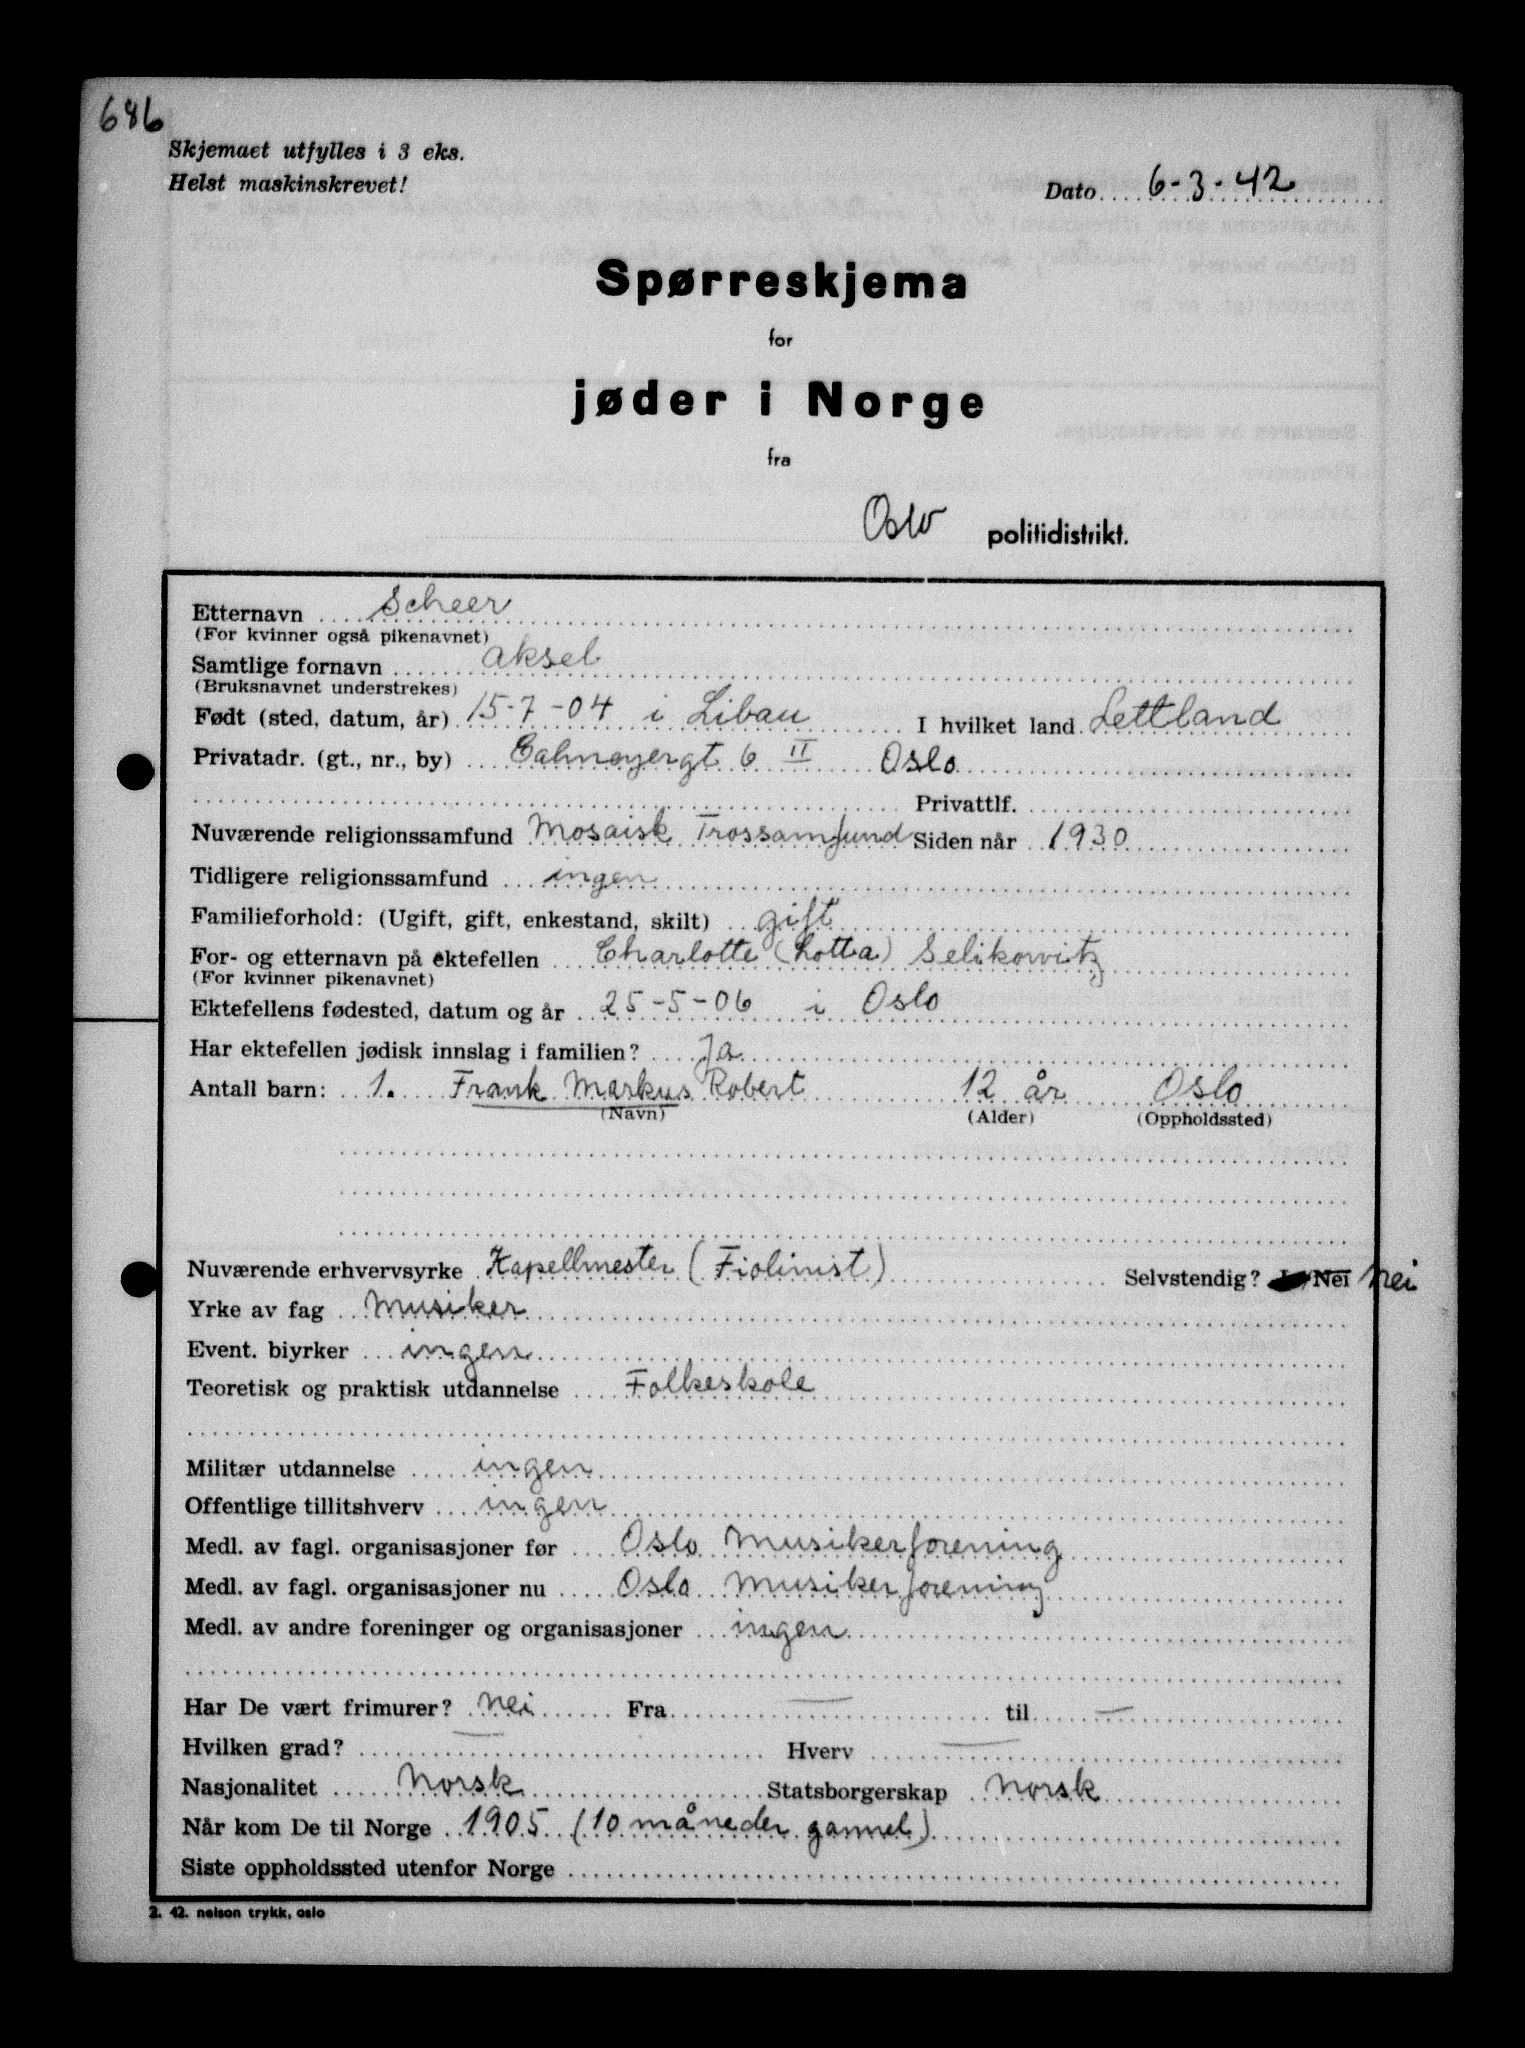 686
Skjemaet utfylles i 3 eks.
Helst maskinskrevet!
Dato 6-3-42
Spørreskjema
for
jøder i Norge
fra
Oslo politidistrikt.
Etternavn Scheer
(For kvinner også pikenavnet)
Samtlige fornavn Aksel
(Bruksnavnet understrekes)
Født (sted, datum, år) 15-7-04 i Libau I hvilket land Lettland
Privatadr. (gt., nr., by) Calmeyergt 6 II Oslo
Privattlf.
Nuværende religionssamfund Mosaisk Trossamfund Siden når 1930
Tidligere religionssamfund ingen
Familieforhold: (Ugift, gift, enkestand, skilt) gift
For- og etternavn på ektefellen Charlotte (Lotta) Selikowitz
(For kvinner pikenavnet)
Ektefellens fødested, datum og år 25-5-06 i Oslo
Har ektefellen jødisk innslag i familien? Ja
Antall barn: 1. Frank Markus Robert 12 år Oslo
(Navn) (Alder) (Oppholdssted)
Nuværende erhvervsyrke Kapellmester (Fiolinist) Selvstendig? /Nei nei
Yrke av fag Musiker
Event. biyrker ingen
Teoretisk og praktisk utdannelse Folkeskole
Militær utdannelse ingen
Offentlige tillitshverv ingen
Medl. av fagl. organisasjoner før Oslo Musikerforening
Medl. av fagl. organisasjoner nu Oslo Musikerforening
Medl. av andre foreninger og organisasjoner ingen
Har De vært frimurer? nei Fra — til —
Hvilken grad? — Hverv —
Nasjonalitet Norsk Statsborgerskap Norsk
Når kom De til Norge 1905 (10 måneder gammel)
Siste oppholdssted utenfor Norge
2. 42. nelson trykk, oslo